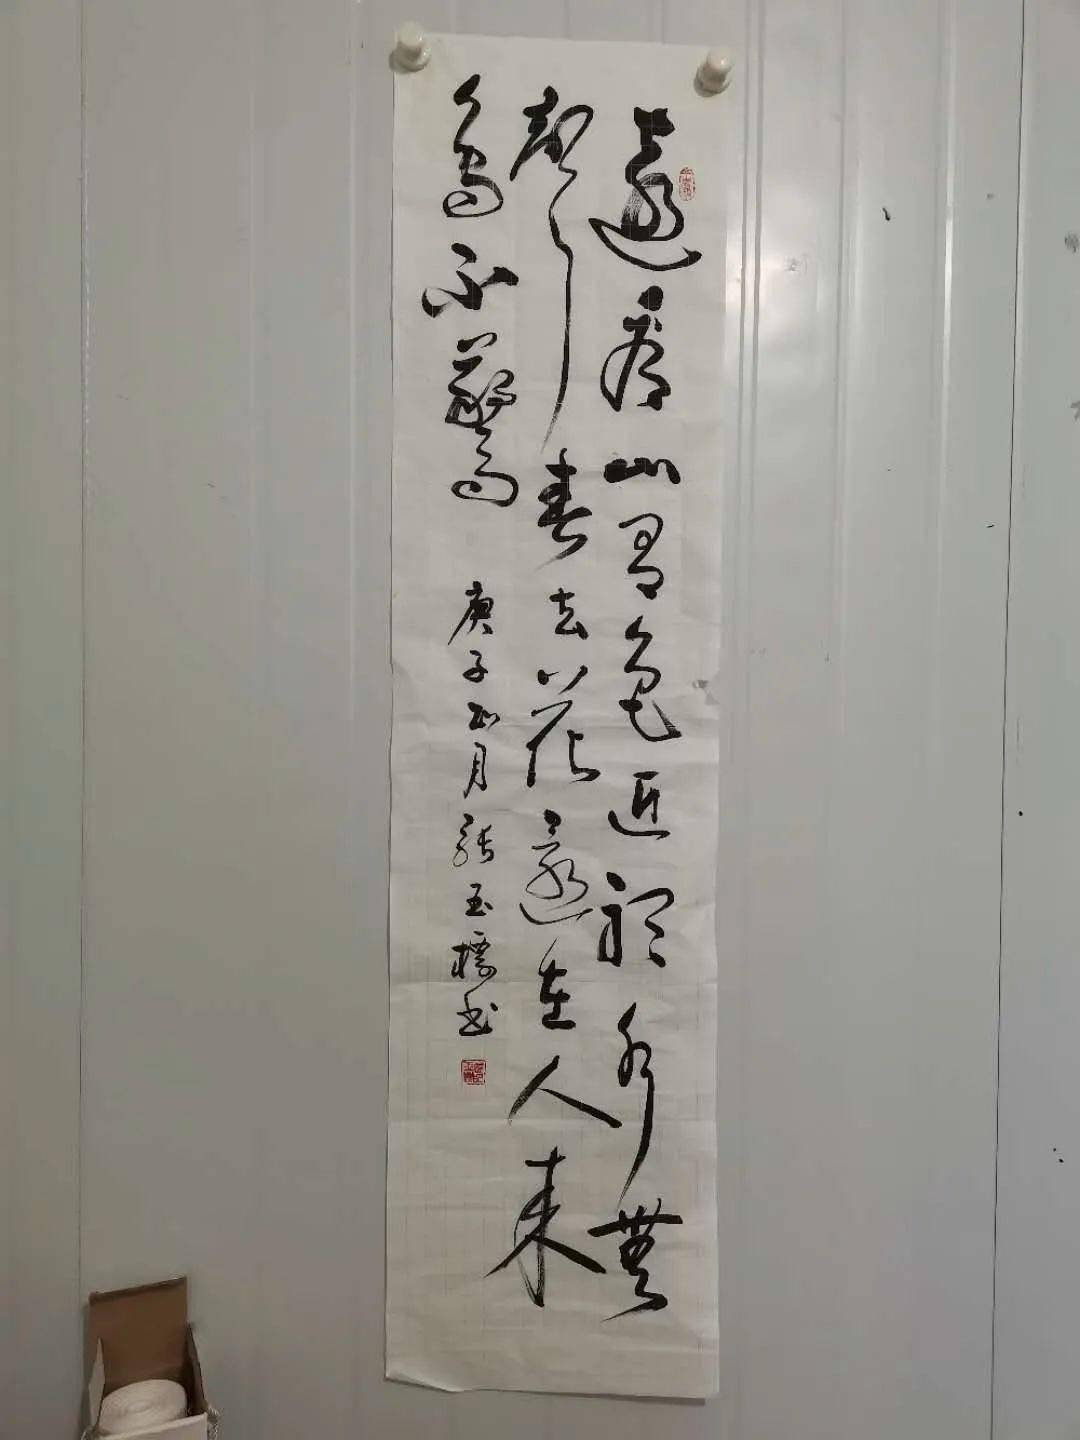 遠看山有色近聽水無
聲春去花還在人來
鳥不驚
庚子正月張玉橋書